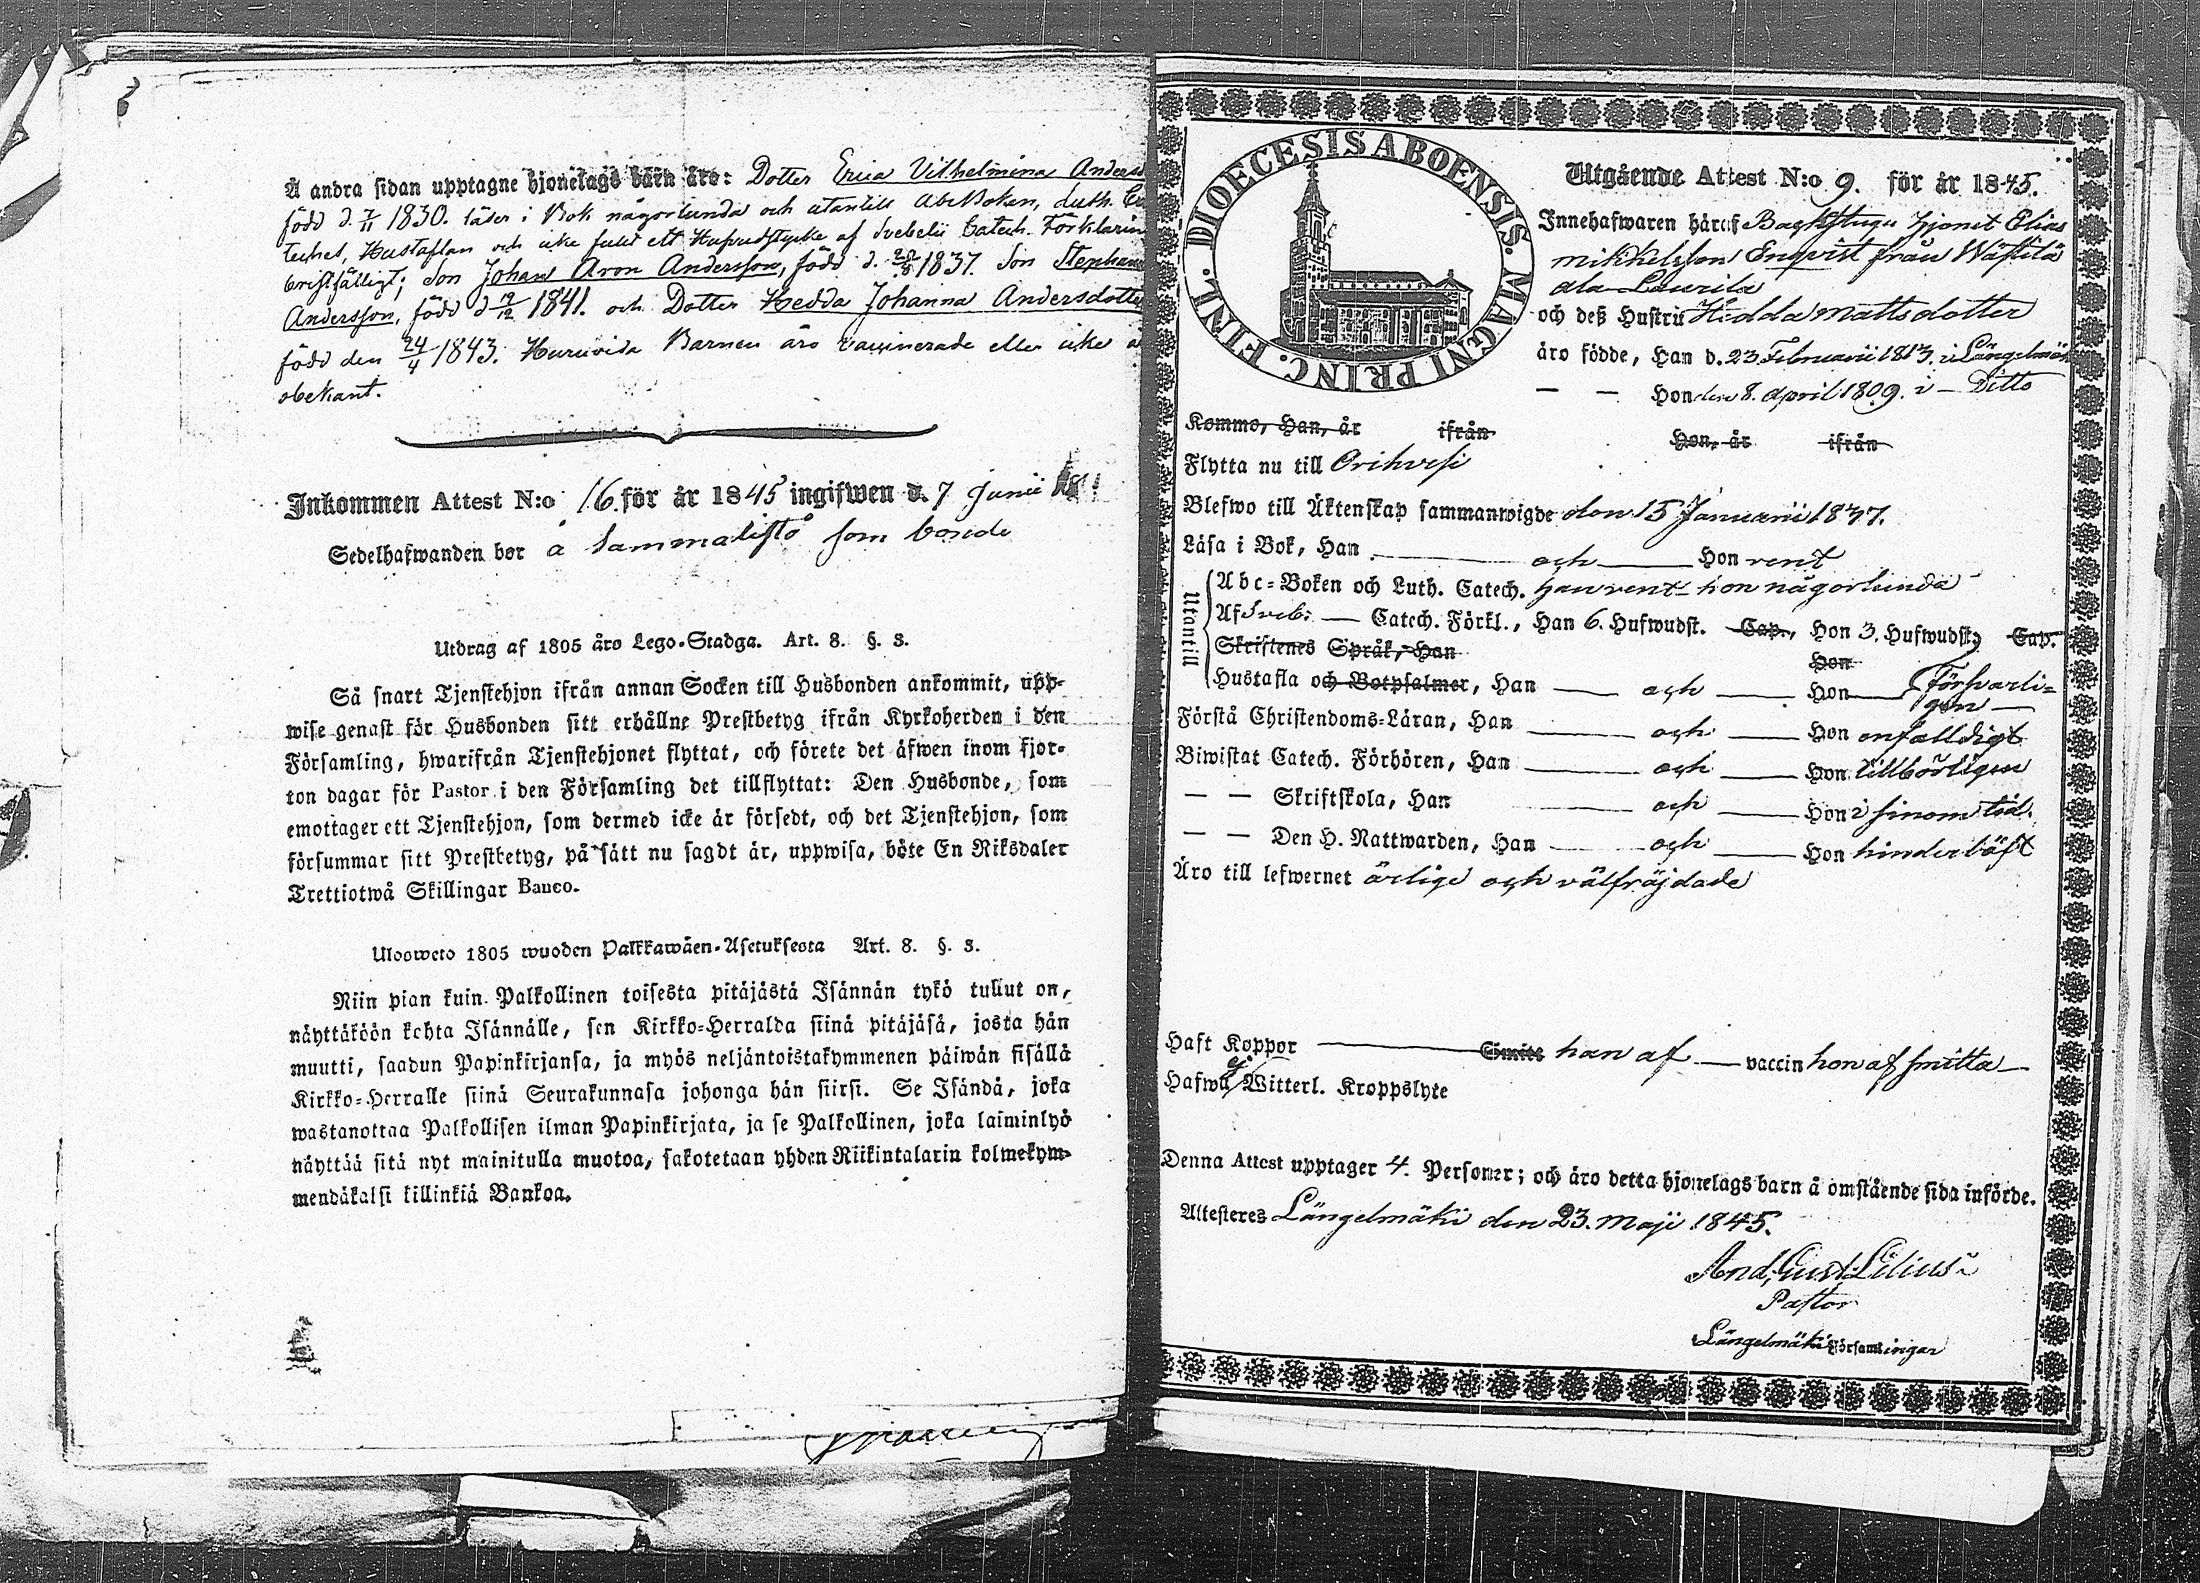 Å andra sidan upptagne hjonelags barn äro: Dotter Erica Vilhelmina Anders
född d. 7/11 1830. läser i Bok någorlunda och utantill AbcBoken, Luth. Ca
teches, Hustaflan och icke fullt ett Hufvudstycke af Svebelii Catech. Förklarin
bristfälligt; Son Johan Aron Andersson, född d. 1837. Son Stephan
Andersson, född d 19/12 1841. och Dotter Hedda Johanna Andersdotte
född den 24/4 1843. Huruvida Barnen äro vaccinerade eller icke ä
obekant.
Inkommen Attest N:o 16 för år 1845 ingifwen d. 7 Junii
Sedelhafwanden bor å Sammalisto som bonde
Utdrag af 1805 års Lego-Stadga. Art. 8. §. 3.
Så snart Tjenstehjon ifrån annan Socken till Husbonden ankommit, upp-
wise genast för Husbonden sitt erhållne Prestbetyg ifrån Kyrkoherden i den
Församling, hwarifrån Tjenstehjonet flyttat, och förete det äfwen inom fjor-
ton dagar för Pastor i den Församling det tillflyttat: Den Husbonde, som
emottager ett Tjenstehjon, som dermed icke är försedt, och det Tjenstehjon, som
försummar sitt Prestbetyg, på sätt nu sagdt är, uppwisa, böte En Riksdaler
Trettiotwå Skillingar Banco.
Ulosweto 1805 wuoden Palkkawäen-Asetuksesta Art. 8. §. 3.
Niin pian kuin Palkollinen toisesta pitäjästä Isännän tykö tullut on,
näyttäköön kohta Isännälle, sen Kirkko-Herralda siinä pitäjäsä, josta hän
muutti, saadun Papinkirjansa, ja myös neljäntoistakymmenen päiwän sisällä
Kirkko-Herralle siinä Seurakunnasa johonga hän siirsi. Se Isändä, joka
wastanottaa Palkollisen ilman Papinkirjata, ja se Palkollinen, joka laiminlyö
näyttää sitä nyt mainitulla muotoa, sakotetaan yhden Riikintalarin kolmekym-
mendäkaksi killinkiä Bankoa.
DIOECESIS ABOENSIS. MAGNI PRINC. FINL.
Utgående Attest N:o 9. för år 1845.
Innehafwaren häraf Backstugu Hjonet Elias
Mikkelsson Enqvist från Wästilä
ala Laurila
och deß Hustru Hedda Mattsdotter
äro födde, Han d. 23 Februarii 1813. i Längelmäki
— — Hon den 8. April 1809. i — Ditto
Kommo, Han, år ifrån Hon, år ifrån
Flytta nu till Orihvesi
Blefwo till Äktenskap sammanwigde den 15 Januarii 1837.
Läsa i Bok, Han — och — Hon rent
Utantill
Abc-Boken och Luth. Catech. Han rent — hon någorlunda
Af Sveb: — Catech. Förkl., Han 6. Hufwudst. Cap., Hon 3. Hufwudst. Cap.
Skriftenes Språk, Han Hon
Hustafla och Botpsalmer, Han — och — Hon — Försvarli-
gen —
Förstå Christendoms-Läran, Han — och — Hon enfaldigt
Biwistat Catech. Förhören, Han — och — Hon tillbörligen
— — Skriftskola, Han och — Hon i sinom tid.
— — Den H. Nattwarden, Han — och — Hon hinderlöst
Äro till lefwernet ärlige och välfräjdade
Haft Koppor — Smitt han af — vaccin hon af smitta —
Hafwa ej Witterl. Kroppslyte
Denna Attest upptager 4. Personer; och äro detta hjonelags barn å omstående sida införde.
Attesteres Längelmäki den 23. Maji 1845.
And. Gust. Lilius
Pastor
Längelmäki Församlingar